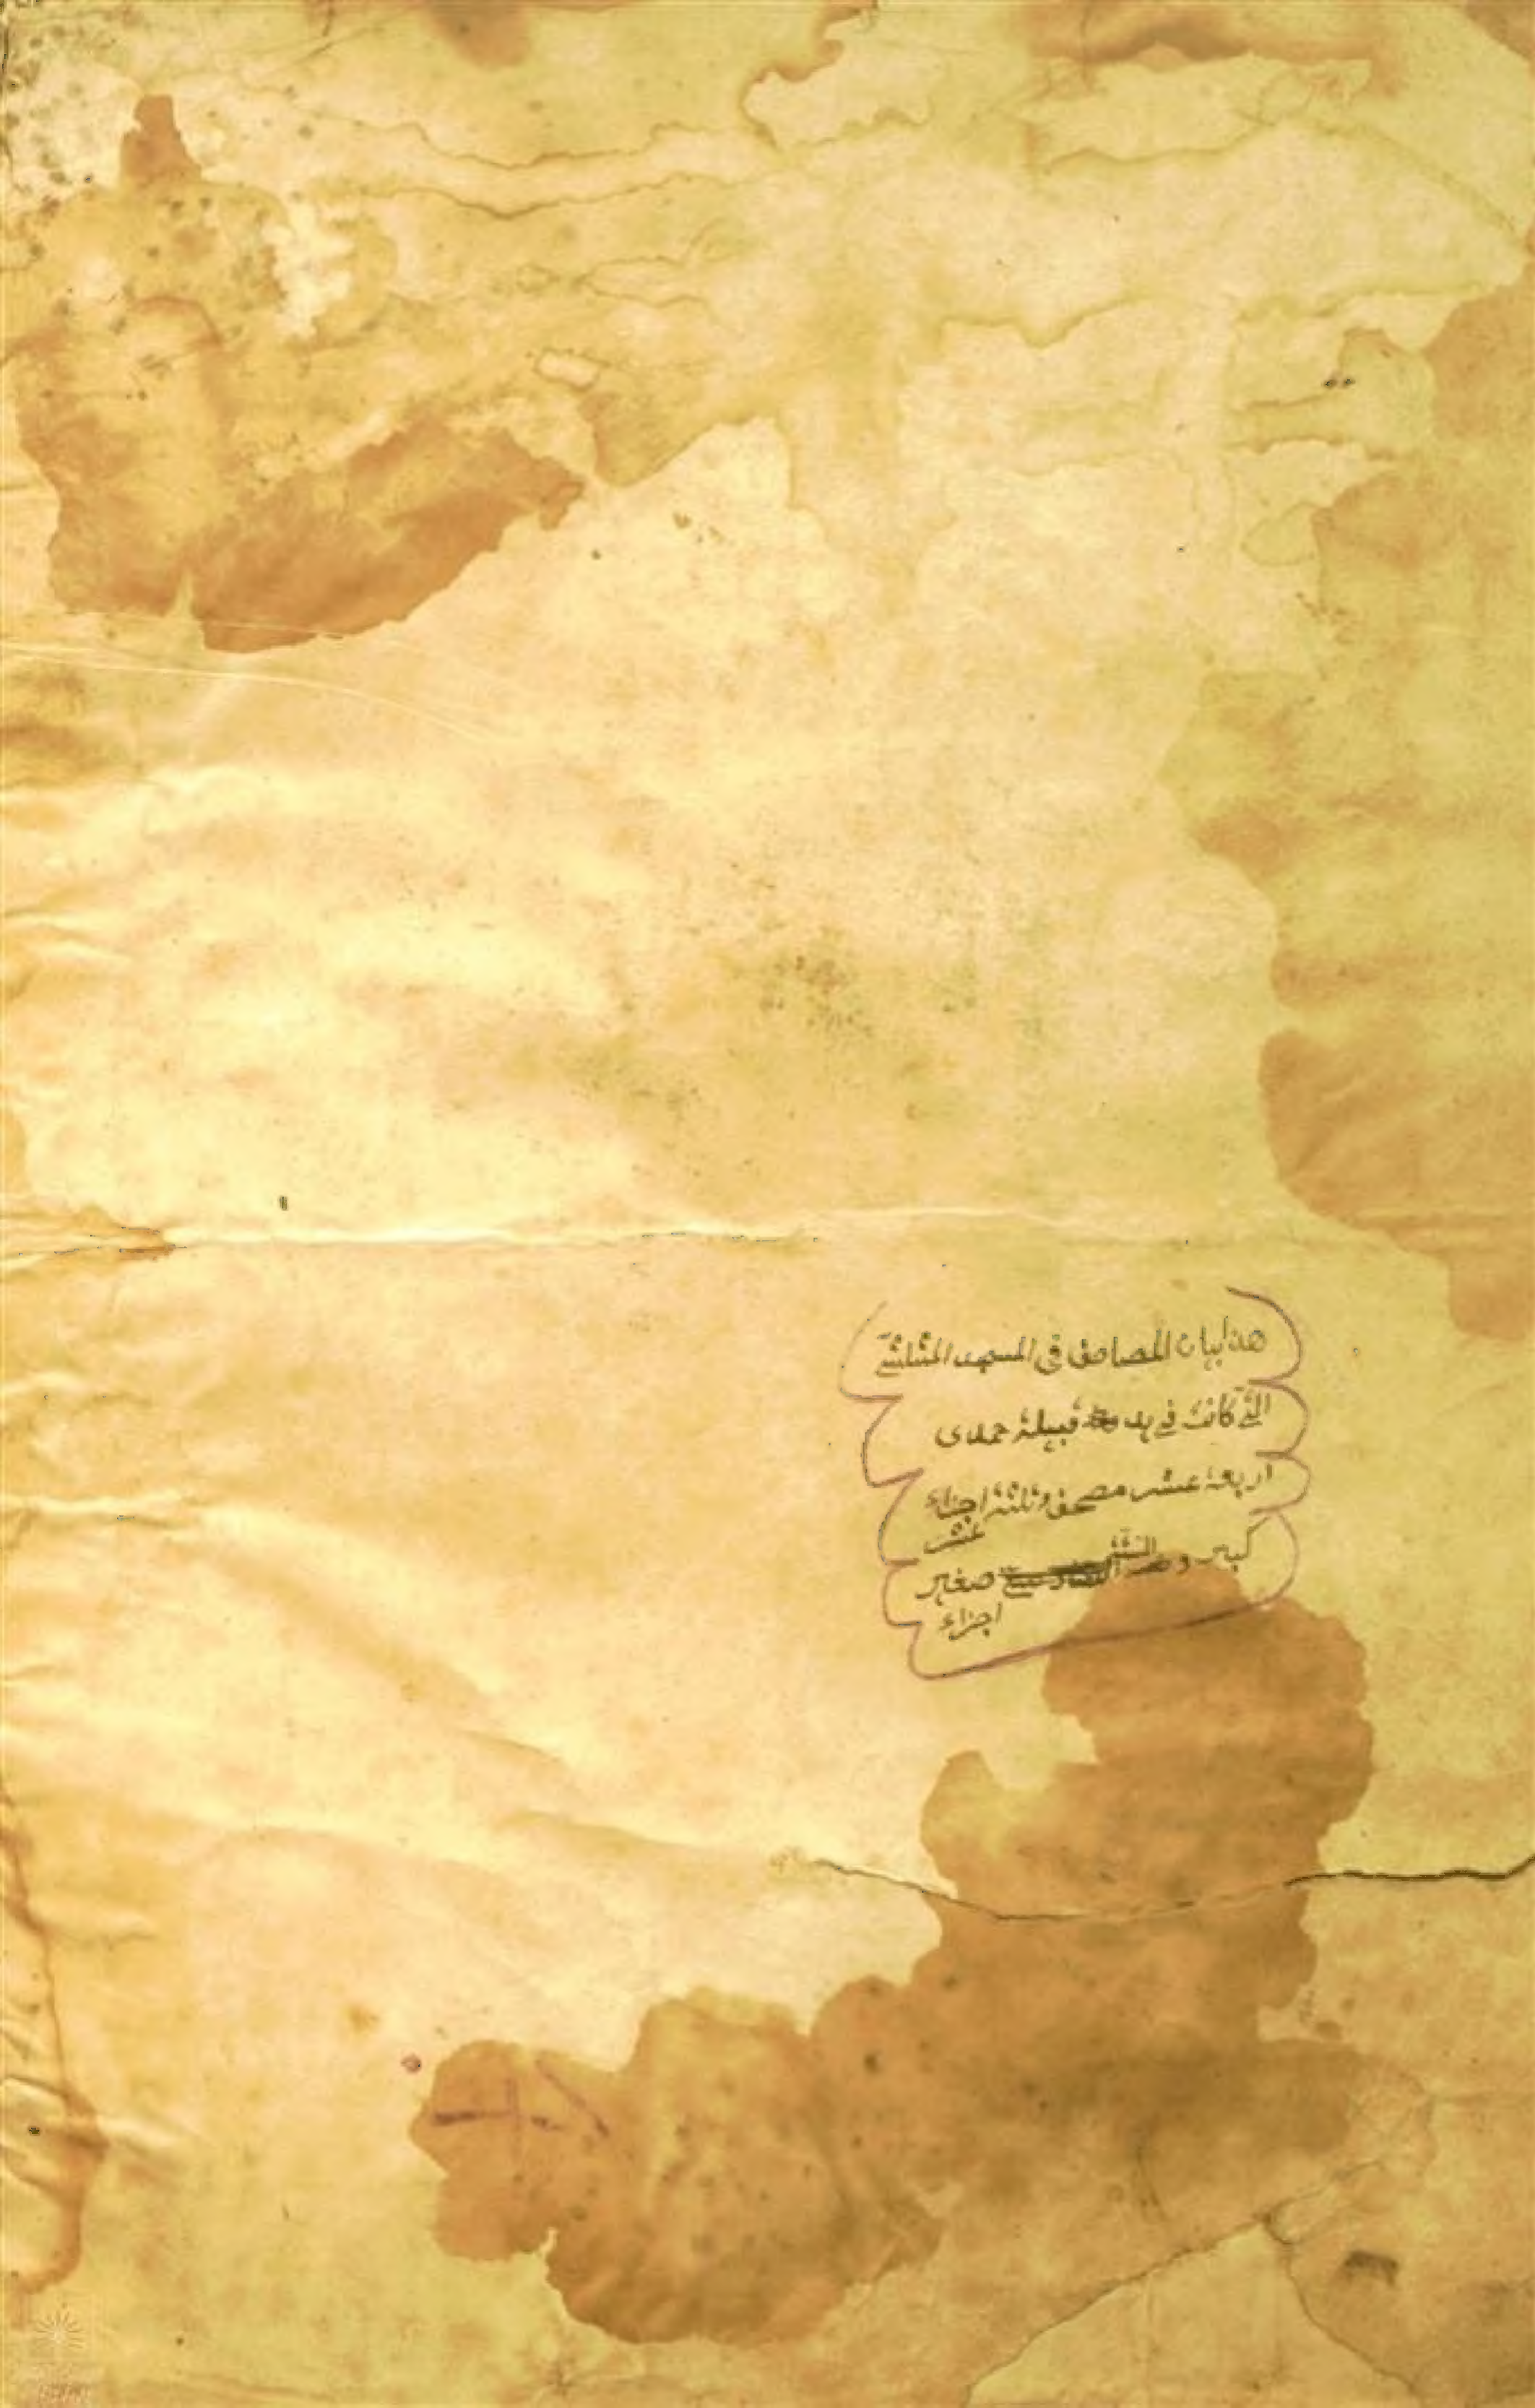 هذا بيان المصاحف في المسجد
التي كانت في يد قبيلة حمدي
اربعة عشر مصحف وثلثة اجزاء
عشر
كبير و صغير
اجزاء